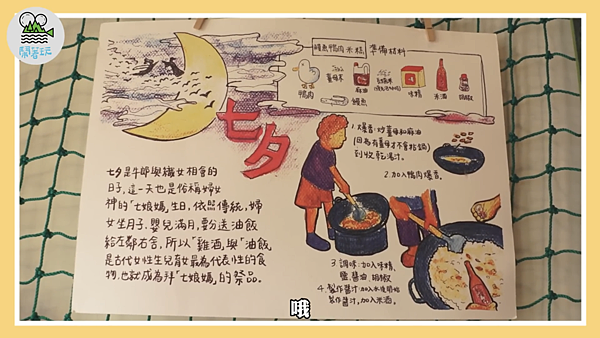 鬧著玩
鱷魚鴨肉米糕
準備材料
鴨肉
薑母茶
麻油
味精
米酒
胡椒
鱷魚
七夕
七夕是牛郎與織女相會的
日子,這一天也是俗稱婦女
神的「七娘媽」生日,依照傳統,婦
女坐月子、嬰兒滿月,要分送油飯
給左鄰右舍,所以「雞酒」與「油飯」
是古代女性生兒育女最為代表性的食
物,也就成為拜「七娘媽」的祭品。
1.爆香:炒薑母和麻油
(因為有薑母才不會搶鍋)
到收乾湯汁。
2.加入鴨肉爆香。
3.調味:加入味精、
鹽、醬油、胡椒
4.製作醬汁:加入水後開始
製作醬汁,加入米酒。
哦